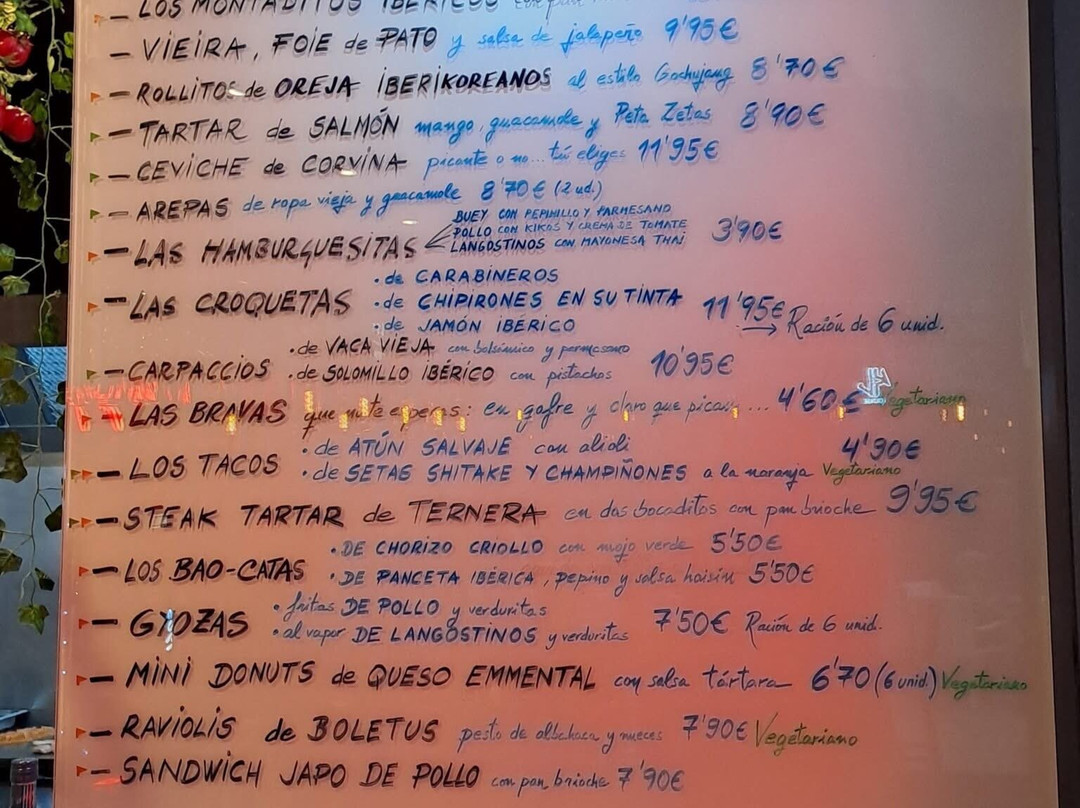 LOS MONTADITOS IBÉRICOS con pan
– VIEIRA, FOIE de PATO y salsa de jalapeño 9'95€
– ROLLITOS de OREJA IBERIKOREANOS al estilo Gochujang 8'70€
– TARTAR de SALMÓN mango, guacamole y Peta Zetas 8'90€
– CEVICHE de CORVINA picante o no... tú eliges 11'95€
– AREPAS de ropa vieja y guacamole 8'70€ (2 ud.)
BUEY CON PEPINILLO Y PARMESANO
– LAS HAMBURGUESITAS POLLO CON KIKOS Y CREMA DE TOMATE 3'90€
LANGOSTINOS CON MAYONESA THAI
• de CARABINEROS
– LAS CROQUETAS • de CHIPIRONES EN SU TINTA 11'95€
• de JAMÓN IBÉRICO → Ración de 6 unid.
• de VACA VIEJA con balsámico y parmesano
– CARPACCIOS • de SOLOMILLO IBÉRICO con pistachos 10'95€
– LAS BRAVAS que no te esperas: en gofre y claro que pican ... 4'60€ Vegetariano
• de ATÚN SALVAJE con alioli 4'90€
– LOS TACOS • de SETAS SHITAKE Y CHAMPIÑONES a la naranja Vegetariano
– STEAK TARTAR de TERNERA en dos bocaditos con pan brioche 9'95€
• DE CHORIZO CRIOLLO con mojo verde 5'50€
– LOS BAO-CATAS • DE PANCETA IBÉRICA, pepino y salsa hoisin 5'50€
• fritas DE POLLO y verduritas
– GYOZAS • al vapor DE LANGOSTINOS y verduritas 7'50€ Ración de 6 unid.
– MINI DONUTS de QUESO EMMENTAL con salsa tártara 6'70 (6 unid.) Vegetariano
– RAVIOLIS de BOLETUS pesto de albahaca y nueces 7'90€ Vegetariano
– SANDWICH JAPO DE POLLO con pan brioche 7'90€